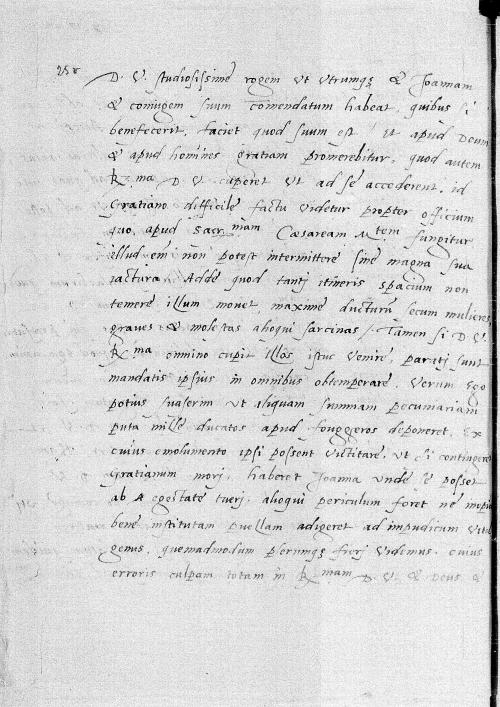 D. V. studiosissime rogem ut utrumque & Joannam
& coniugem suum comendatum habeat, quibus si
benefecerit, faciet quod suum est et apud Deum
& apud homines gratiam promerebitur, quod autem
R.ma D. V. cuperet ut ad se accederent, id
Gratiano difficile factu videtur propter officium
quo, apud Sacr.mam Caesaream M.tem fungitur
illud em non potest intermittere sine magna sua
iactura. Adde quod tantj itineris spacium non
temere illum movet, maxime ducturu secum mulieres
graves & molestas alioqui sarcinas. Tamen si D. V.
R.ma omnino cupit illos istuc venire, paratj sunt
mandatis ipsius in omnibus obtemperare. Verum Ego
potius suaserim ut aliquam summam pecuniariam
puta mille ducatos apud fouggeros deponeret, Ex
cuius emolumento ipsi possent victitare, ut si contingeret
Gratianum morj, haberet Joanna unde se posset
ab egestate tuerj, alioqui periculum foret ne
bene institutam puellam adigeret ad impudicum vitae
genus, quemadmodum plerumque fierj videmus, cuius
erroris culpam totam in R.mam D. V. & Deus &